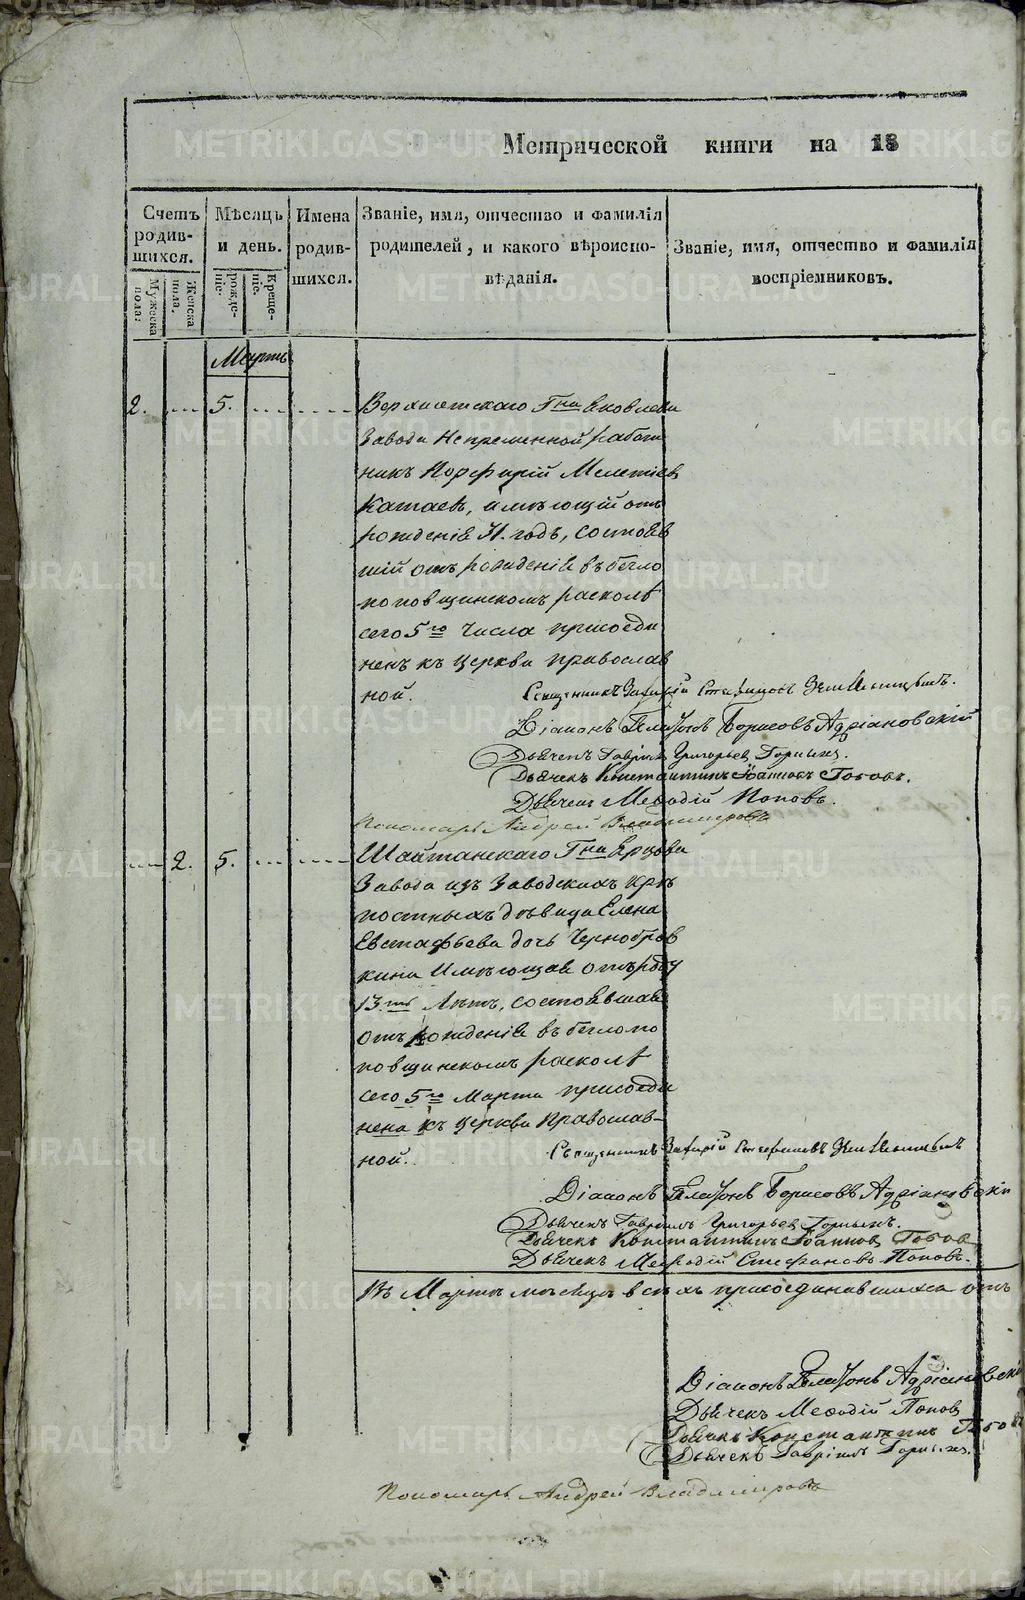 Метрической книги на 18
Счетъ родив-шихся.
Мѣсяцъ и день.
Имена родив-шихся.
Званіе, имя, отчество и фамилія
родителей, и какого вѣроиспо-
вѣданія.
Званіе, имя, отчество и фамилія
воспріемниковъ.
Мужеска пола.
Женска пола.
рожде-ніе.
Креще-ніе.
Мартъ
2. 5. Верхисетскаго Гна Яковлева
Завода Непременной работ
никъ Порфирій Мелетіевъ
Катаевъ, имѣющій отъ
рожденія 31. годъ, состояв
шій отъ рожденія въ бегло
поповщинскомъ расколѣ
сего 5го числа присоеди
ненъ къ церкви православ
ной.
Священникъ Захарій Стефановъ
Діаконъ Платонъ Борисовъ Адріановскій
Дьячекъ Гавріилъ Григорьевъ Горныхъ.
Дьячекъ Константинъ Іоанновъ Готовъ.
Дьячекъ Меѳодій Поповъ.
Пономарь Андрей Владимировъ
2. 5. Шайтанскаго Гна Ярцова
Завода изъ Заводскихъ крѣ
постныхъ дѣвица Елена
Евстафьева дочь Чернобров
кина Имѣющая отъ роду
13ть Лѣтъ, состоявшая
отъ рожденія въ беглопо
повщинскомъ расколѣ
сего 5го Марта присоеди
нена къ церкви Православ-
ной.
Священникъ Захарій Стефановъ
Діаконъ Платонъ Борисовъ Адріановскій
Дьячекъ Гавріилъ Григорьевъ Горныхъ.
Дьячекъ Константинъ Іоанновъ Готовъ
Дьячекъ Меѳодій Стефановъ Поповъ.
Въ Мартѣ мѣсяцѣ всѣхъ присоединившихся отъ
Діаконъ Платонъ Адріановскій
Дьячекъ Меѳодій Поповъ
Дьячекъ Константинъ Готовъ
Дьячекъ Гавріилъ Горныхъ.
Пономарь Андрей Владимировъ
METRIKI.GASO-URAL.RU